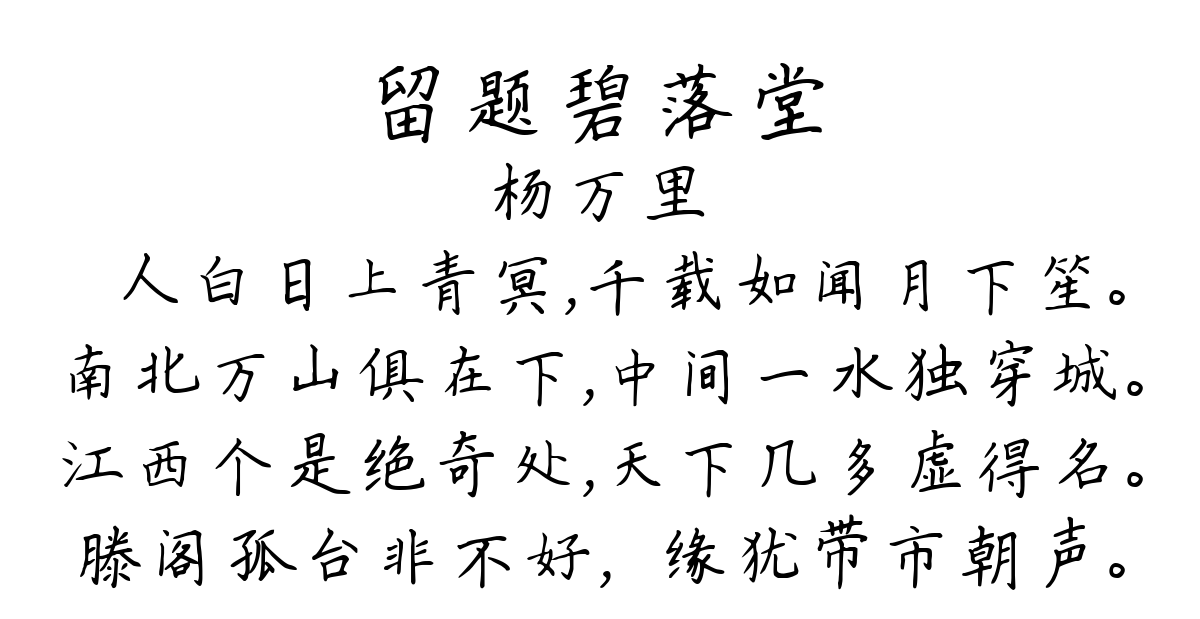 留题碧落堂
杨万里
人白日上青冥,千载如闻月下笙。
南北万山俱在下,中间一水独穿城。
江西个是绝奇处,天下几多虚得名。
滕阁孤台非不好, 缘犹带市朝声。